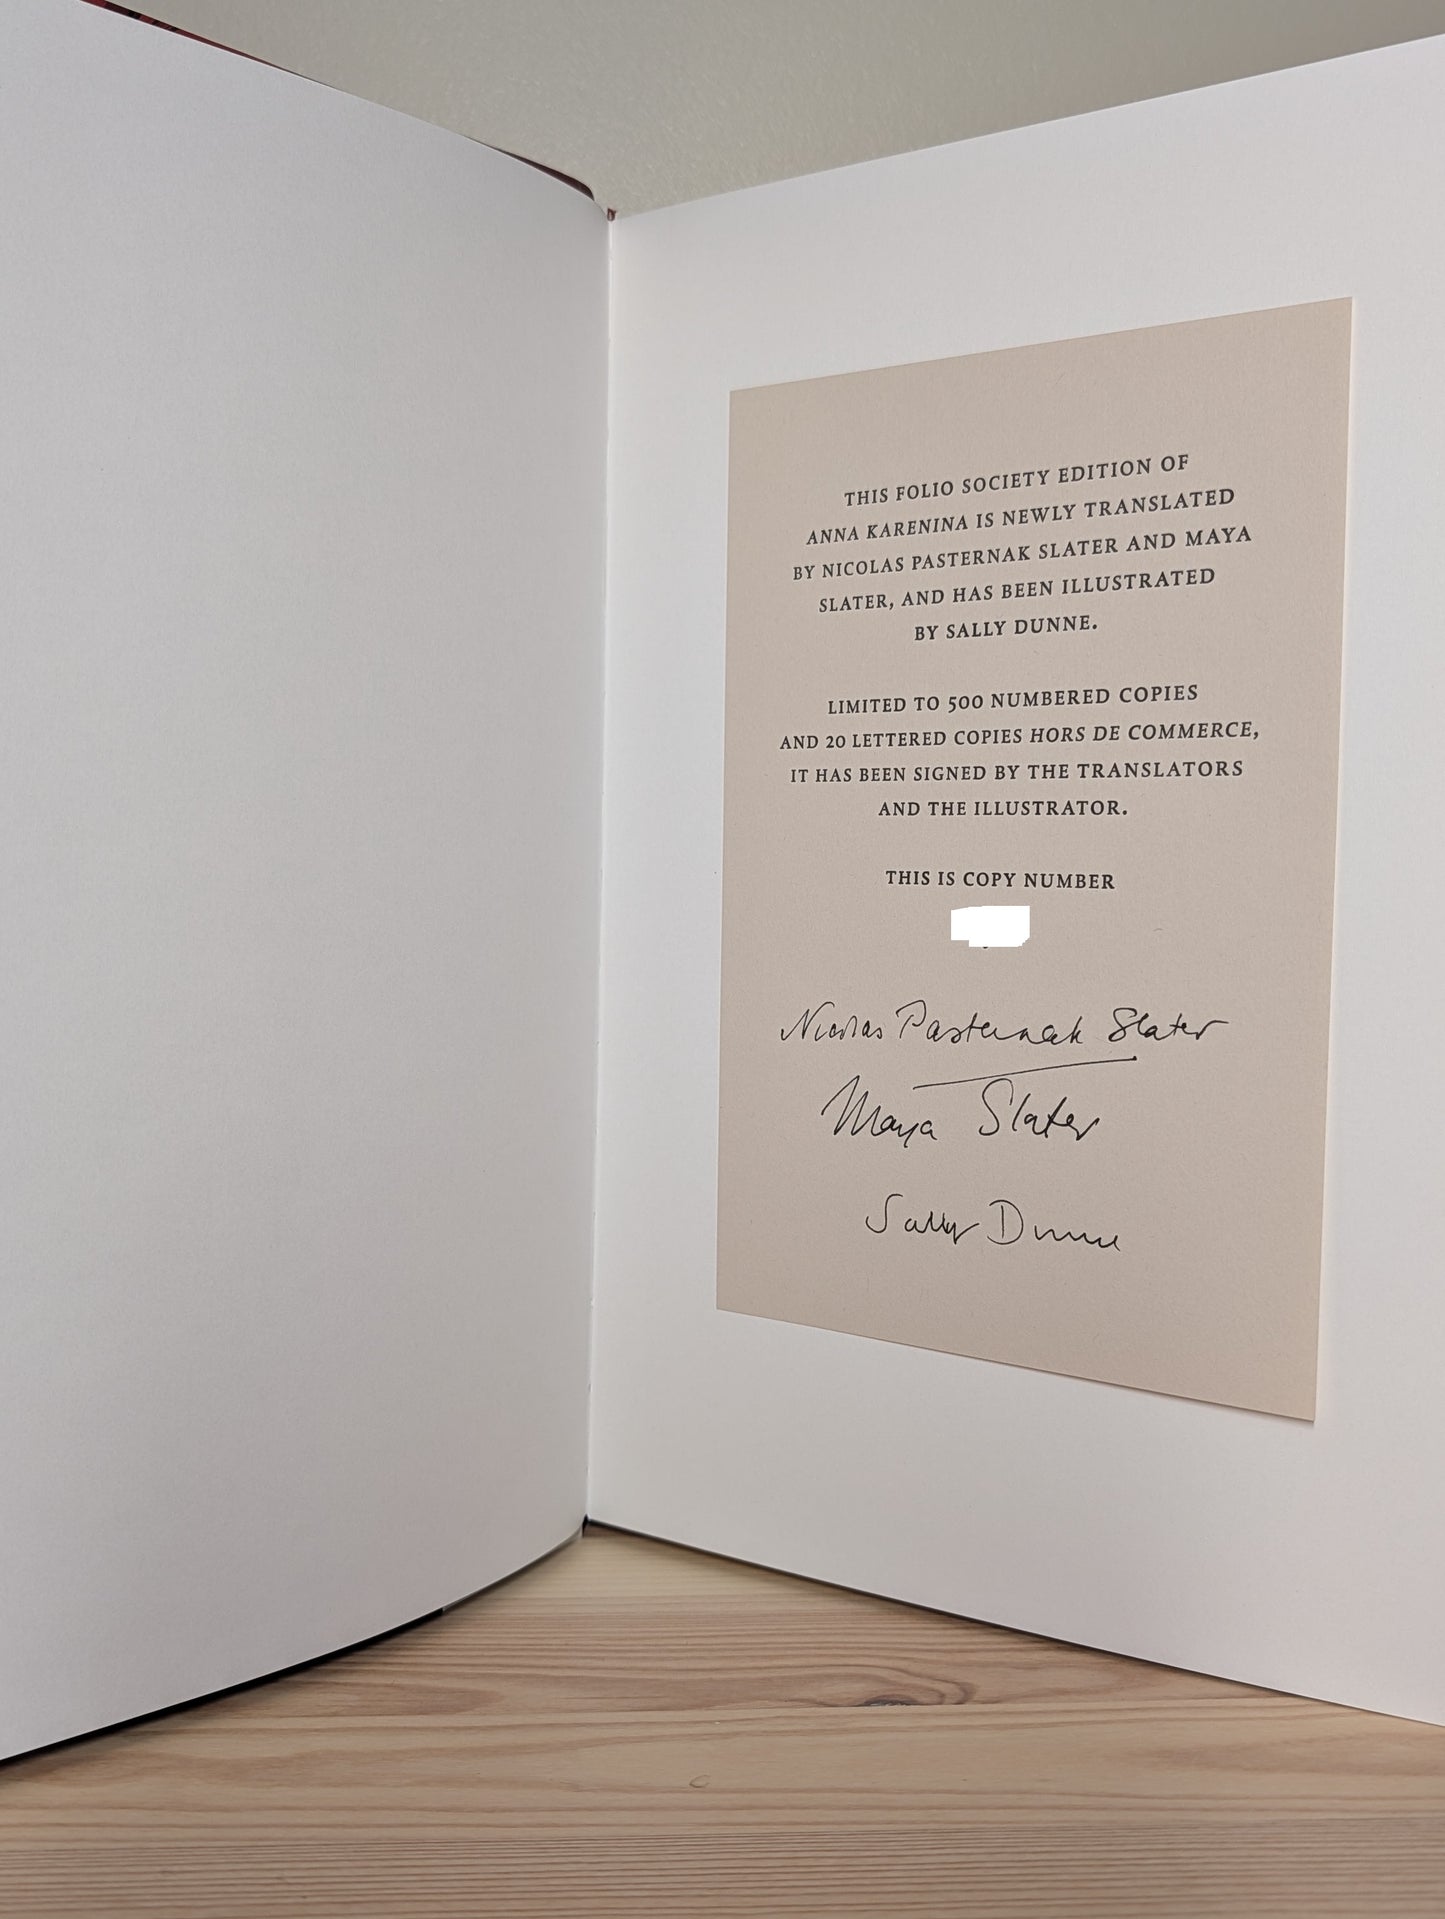 THIS FOLIO SOCIETY EDITION OF
ANNA KARENINA IS NEWLY TRANSLATED
BY NICOLAS PASTERNAK SLATER AND MAYA
SLATER, AND HAS BEEN ILLUSTRATED
BY SALLY DUNNE.
LIMITED TO 500 NUMBERED COPIES
AND 20 LETTERED COPIES HORS DE COMMERCE,
IT HAS BEEN SIGNED BY THE TRANSLATORS
AND THE ILLUSTRATOR.
THIS IS COPY NUMBER
Nicolas Pasternak Slater
Maya Slater
Sally Dunne